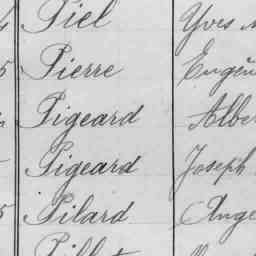 Piel Yves
5 Pierre Eugène
Pigeard Albe
Pigeard Joseph
5 Pilard Ange